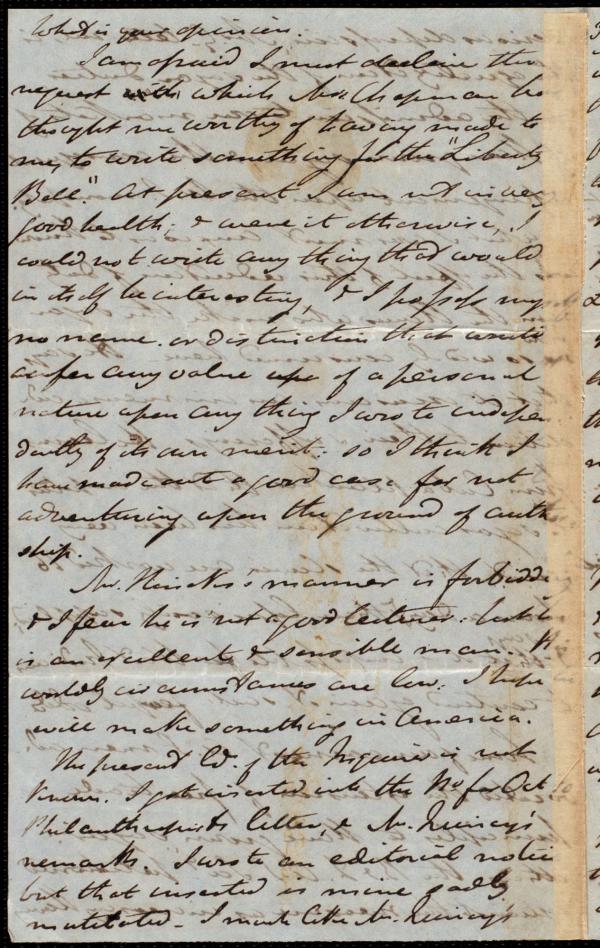 What is your opinion.
I am afraid I must decline the
request with which Mrs. Chapman ha
thought me worthy of having made to
me, to write something for the "Liberty
Bell." At present I am not in very
good health; & were it otherwise, I
could not write any thing that would
in itself be interesting, & I possess my
no name or distinction that would
confer any value upo of a personal
nature upon any thing I wrote indepen
dently of its own merit: so I think I
have made out a good case for not
adventuring upon the ground of auth
ship.
Mr. Hincks's manner is forbiddi
& I fear he is not a good lecturer: but he
is an excellent & sensible man. Hi
worldly circumstances are low: I hope
will make something in America.
The present Ed. of the Inquirer is not
known. I got inserted into the No for Oct 10
Philanthropist's letter, & Mr. Quincy's
remarks. I wrote an editorial notice
but that inserted is mine sadly
mutilated - I much like Mr. Quincy's